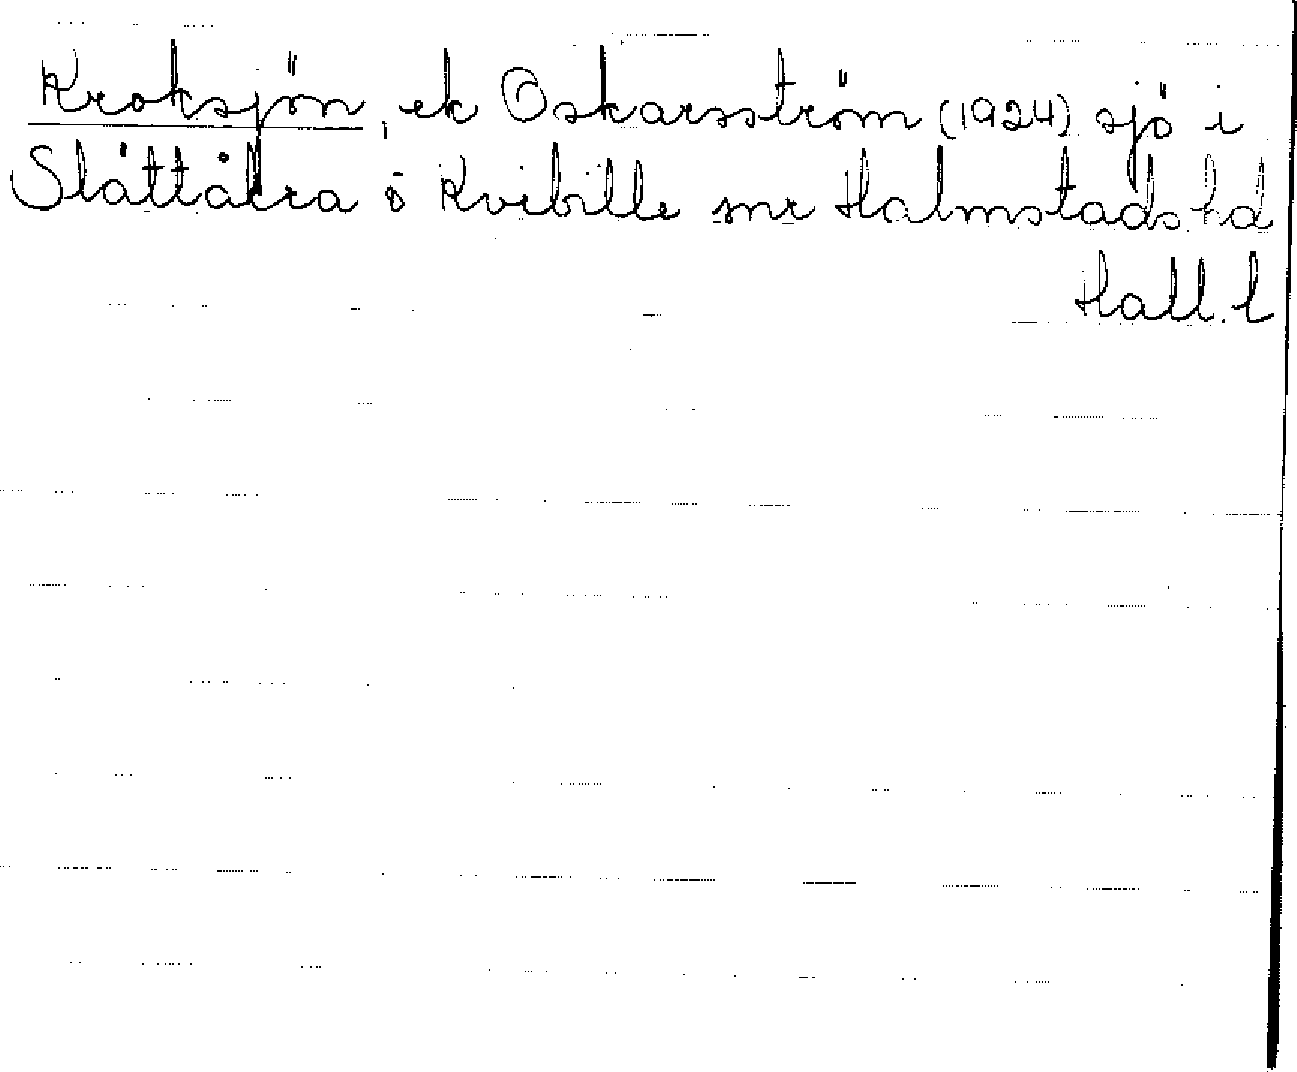 Kroksjön, ek Oskarsström (1924) sjö i
Slättåkra o Kvibille snr Halmstads hd
Hall. l